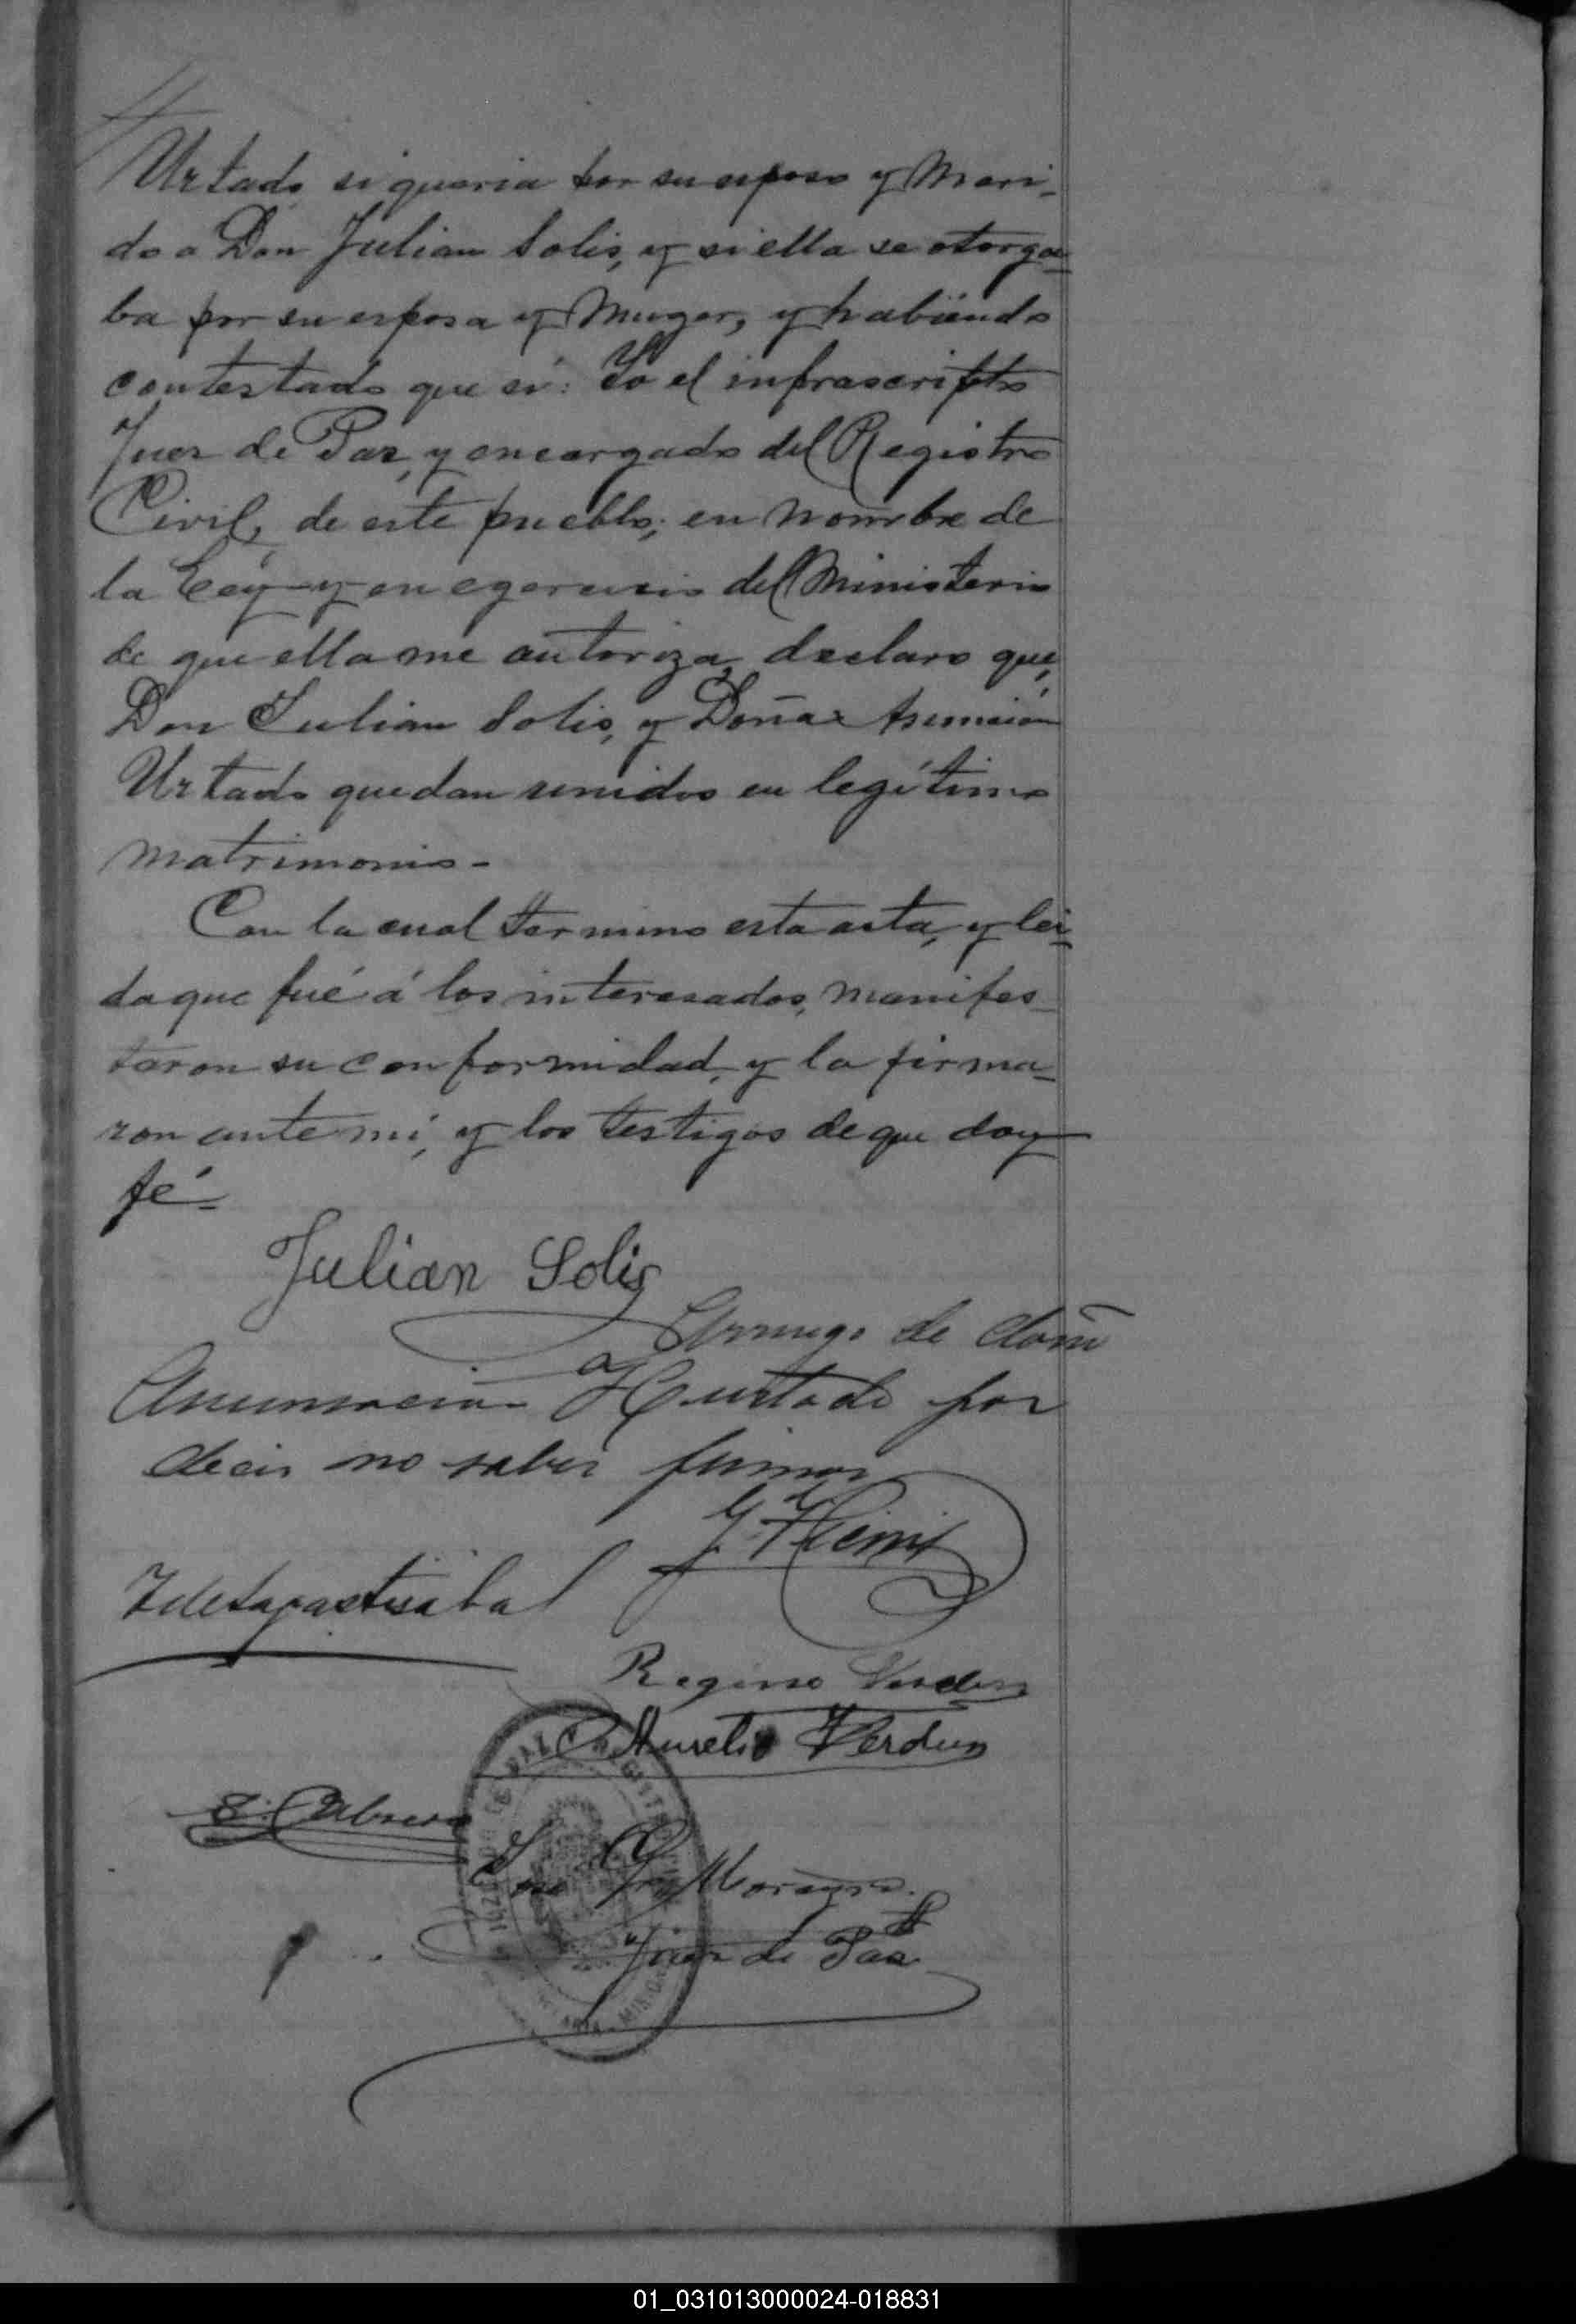 Urtado, si queria por su esposo y Mari-
do a Don Julian Solis, y si ella se otorga-
ba por su esposa y Muger, y habiendo
contestado que si: Yo el infrascripto
Juez de Paz, y encargado del Registro
Civil, de este pueblo; en nombre de
la Ley y en egercicio del Ministerio
de que ella me autoriza, declaro que,
Don Julian Solis, y Doña Asunción
Urtado quedan unidos en legítimo
matrimonio-
Con la cual termino esta acta, y lei-
da que fué á los interesados, manifes-
taron su conformidad, y la firma-
ron ante mí, y los testigos de que doy
fé-
Julian Solis
de doña
Hurtado por
decir no saber firmar
Regino Verdun
Aurelio Verdun
E. Cabrera
Juez de Paz
01_031013000024-018831